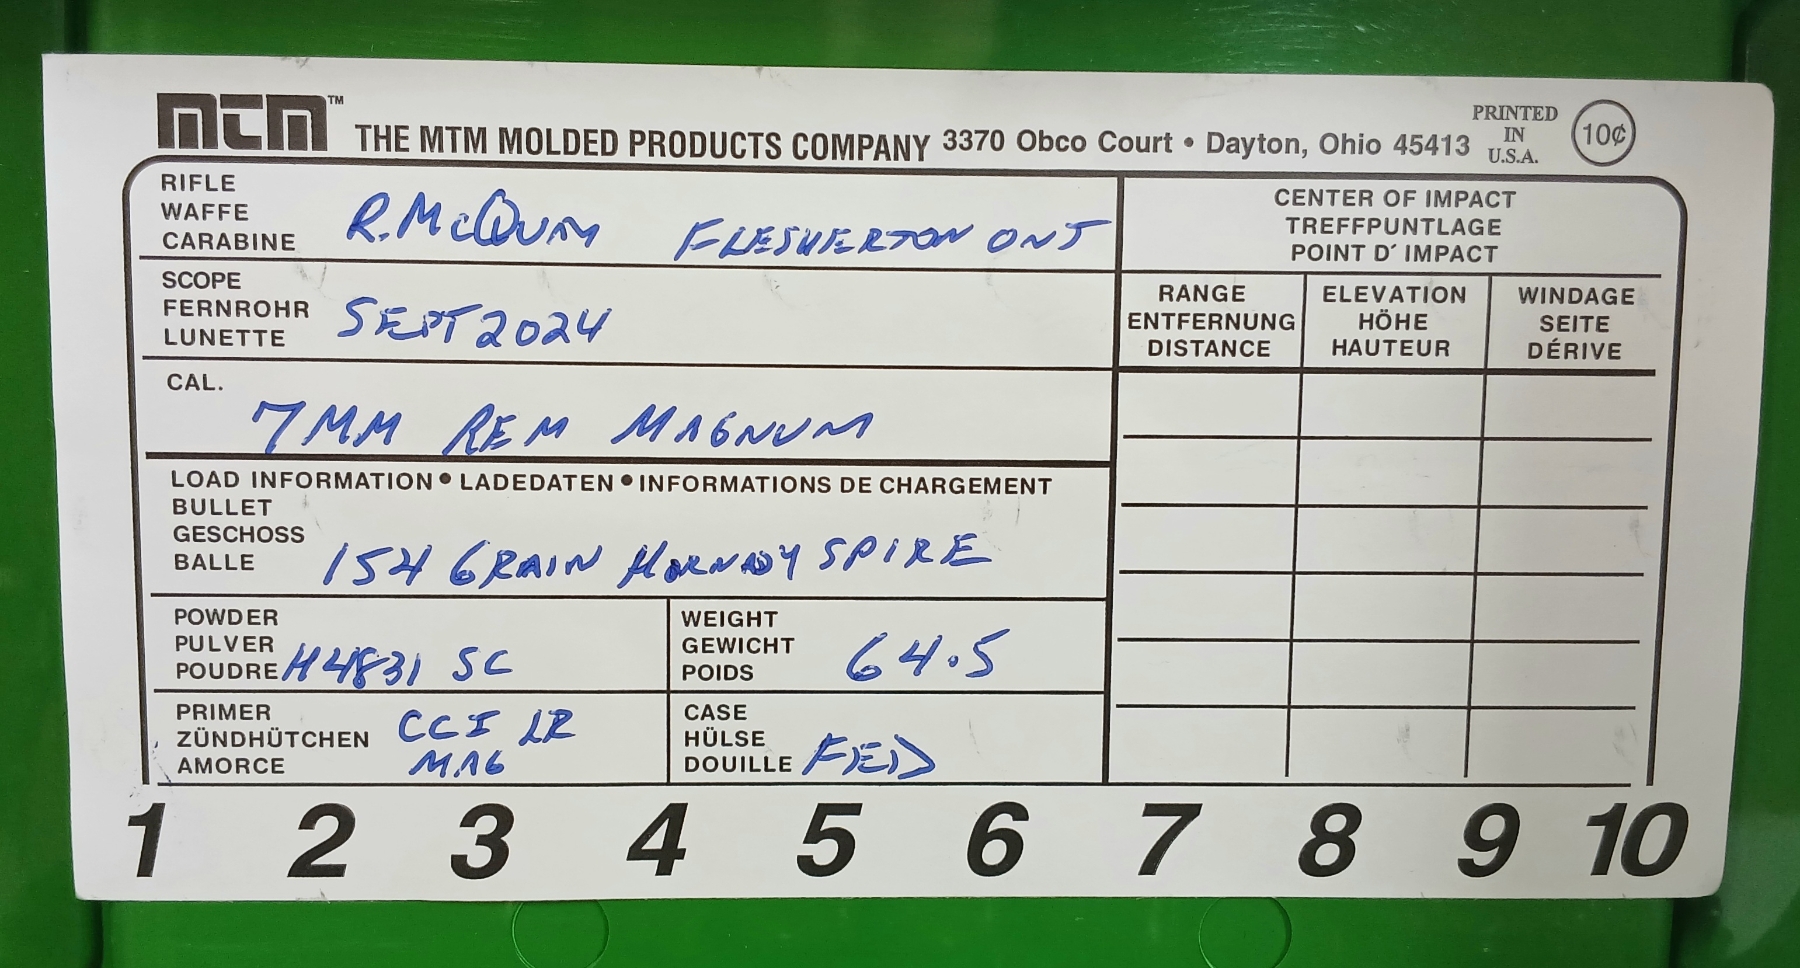 MTM™ THE MTM MOLDED PRODUCTS COMPANY 3370 Obco Court • Dayton, Ohio 45413 PRINTED IN U.S.A. 10¢
RIFLE
WAFFE
CARABINE
R. McQUM FLESHERTON ONT
SCOPE
FERNROHR
LUNETTE
SEPT 2024
CAL.
7MM REM MAGNUM
LOAD INFORMATION • LADEDATEN • INFORMATIONS DE CHARGEMENT
BULLET
GESCHOSS
BALLE
154 GRAIN HORNADY SPIRE
POWDER
PULVER
POUDRE
H4831 SC
WEIGHT
GEWICHT
POIDS
64.5
PRIMER
ZÜNDHÜTCHEN
AMORCE
CCI LR
MAG
CASE
HÜLSE
DOUILLE
FED
CENTER OF IMPACT
TREFFPUNTLAGE
POINT D´ IMPACT
RANGE
ENTFERNUNG
DISTANCE
ELEVATION
HÖHE
HAUTEUR
WINDAGE
SEITE
DÉRIVE
1 2 3 4 5 6 7 8 9 10